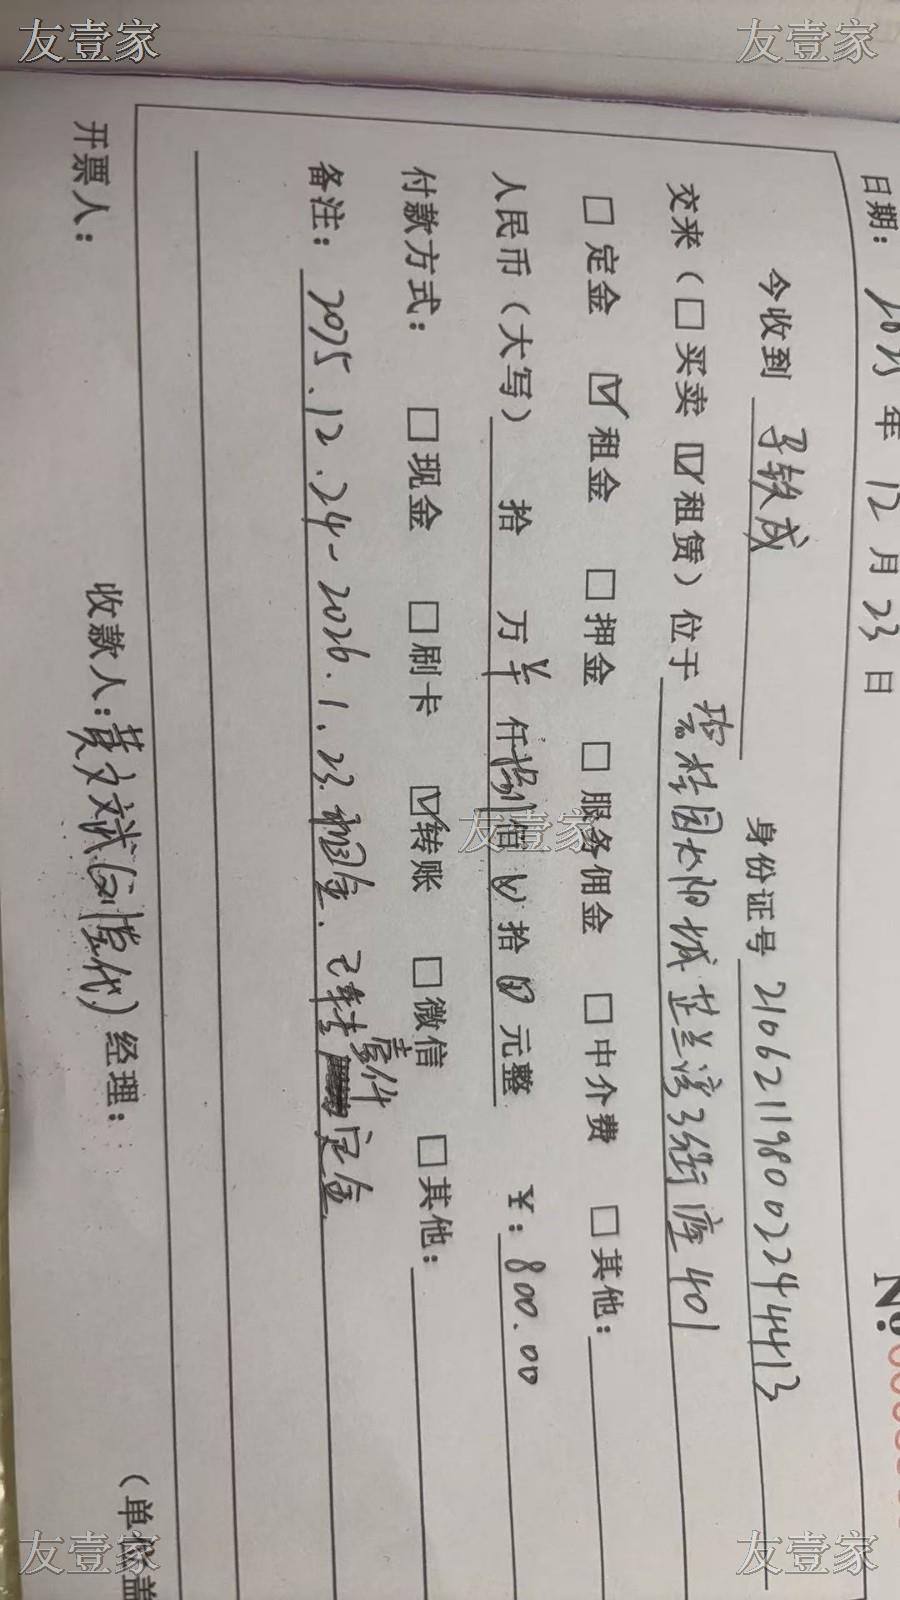 友壹家 友壹家
№:
日期: 2025 年 12 月 23 日
今收到 轶成 身份证号 210621198002244413
交来(□买卖 ☑租赁)位于 碧桂园太阳城芷兰湾3街 座401
□定金 ☑租金 □押金 □服务佣金 □中介费 □其他:
人民币(大写) 拾 万 仟捌佰 拾 元整 ¥:800.00
付款方式: □现金 □刷卡 ☑转账 □微信 □其他:
备注: 2025.12.24-2026.1.23.租金.已转 定金.
开票人: 收款人:黄文斌 代) 经理: (单位盖
友壹家
友壹家 友壹家